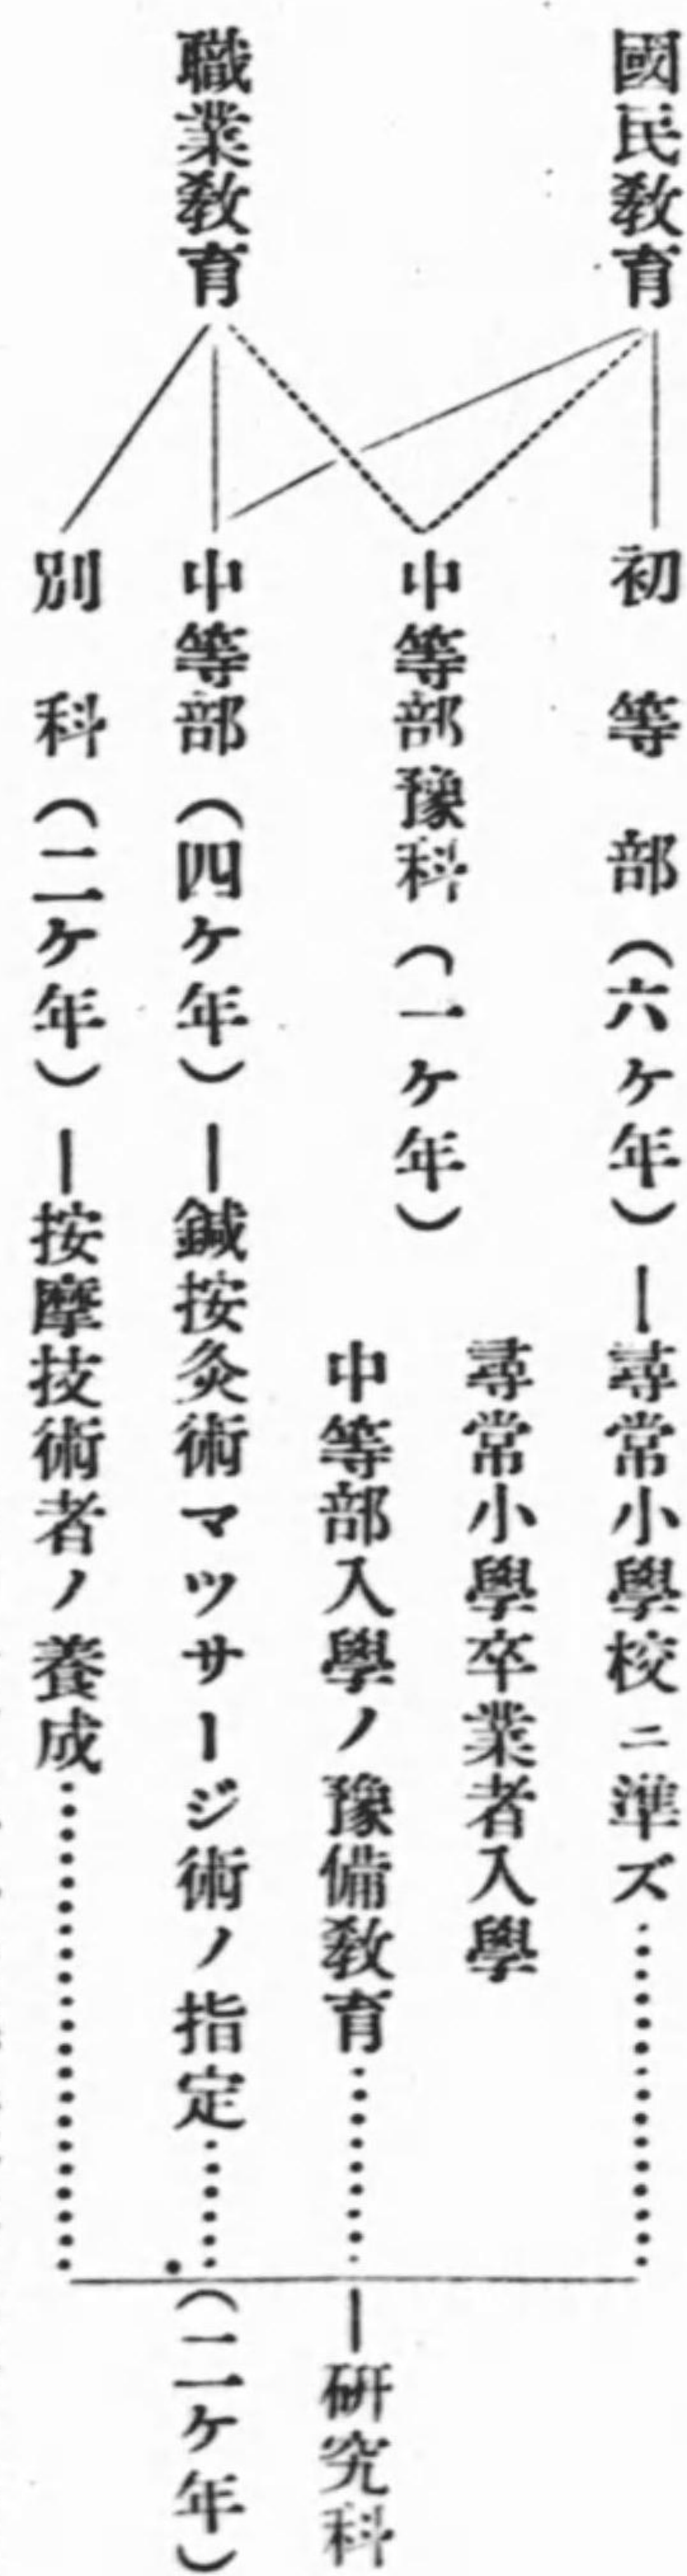 國民教育
職業教育
初等部(六ヶ年)―尋常小學校ニ準ズ………
中等部豫科(一ヶ年)
尋常小學卒業者入學
中等部入學ノ豫備教育………
中等部(四ヶ年)―鍼按灸術マツサージ術ノ指定……
別科(二ヶ年)―按摩技術者ノ養成………
―硏究科
(二ヶ年)